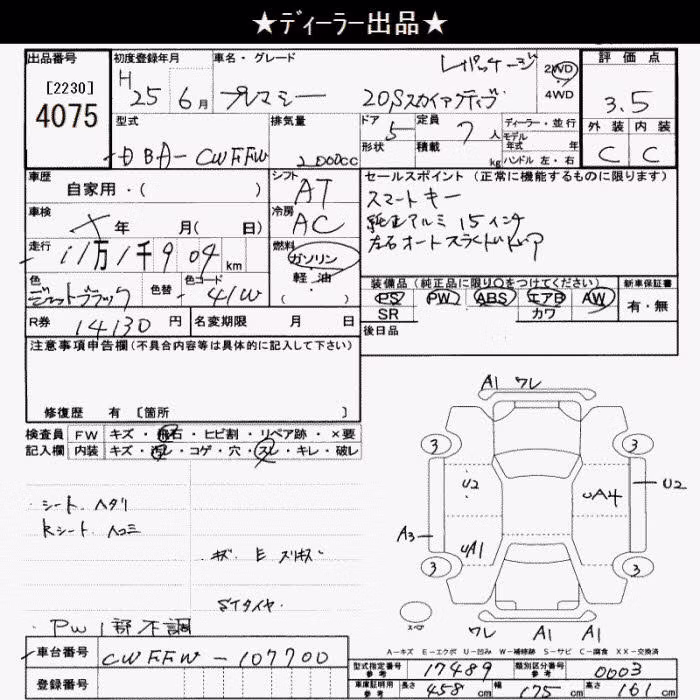 ★ディーラー出品★
出品番号 初度登録年月 車名・グレード 評価点
[2230] H 25年 6月 プレマシー 20Sスカイアクティブ Lパッケージ 2WD 4WD 3.5
4075
外装 内装
C C
型式 排気量 ドア 定員 ディーラー・並行
DBA-CWFFW 2000cc 5 7人 モデル年式 年
形状 積載 kg ハンドル 左・右
車歴 シフト セールスポイント (正常に機能するものに限ります)
自家用・( ) AT スマートキー
車検 冷房 純正アルミ 15インチ
× 年 月( 日) AC 左右オートスライドドア
走行 燃料
11万1千909km ガソリン
色 色替 色コード 軽油
ジェットブラック 41W ( )
装備品 (純正品に限り○をつけてください) 新車保証書
PS PW ABS エアB AW 有・無
SR カワ
R券 14130円 名変期限 月 日 後日品
注意事項申告欄(不具合内容等は具体的に記入して下さい)
修復歴 有 [箇所 ]
検査員 FW キズ・飛石・ヒビ割・リペア跡・×要
記入欄 内装 キズ・汚レ・コゲ・穴・スレ・キレ・破レ
シート ヘタリ
Rシート ヘコミ
キズ E スリキズ
Sタイヤ
PW 1部不調
A1 ワレ
3 3
U2 UA4 U2
A3 UA1
3 3
スペア
ワレ A1 A1
A-キズ E-エクボ U-凹み W-補修跡 S-サビ C-腐食 XX-交換済
車台番号 CWFFW-107700 型式指定番号 参考 17489 類別区分番号 参考 0003
登録番号 車庫証明用 参考 長さ 458cm 幅 175cm 高さ 161cm